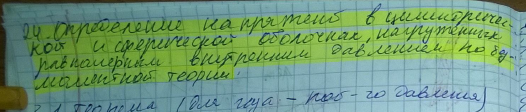 24. Определение напряжений в цилиндричес-
кой и сферической оболочках, нагруженных
равномерным внутренним давлением по без-
моментной теории.
1 теорема (для газа - пов-го давления)